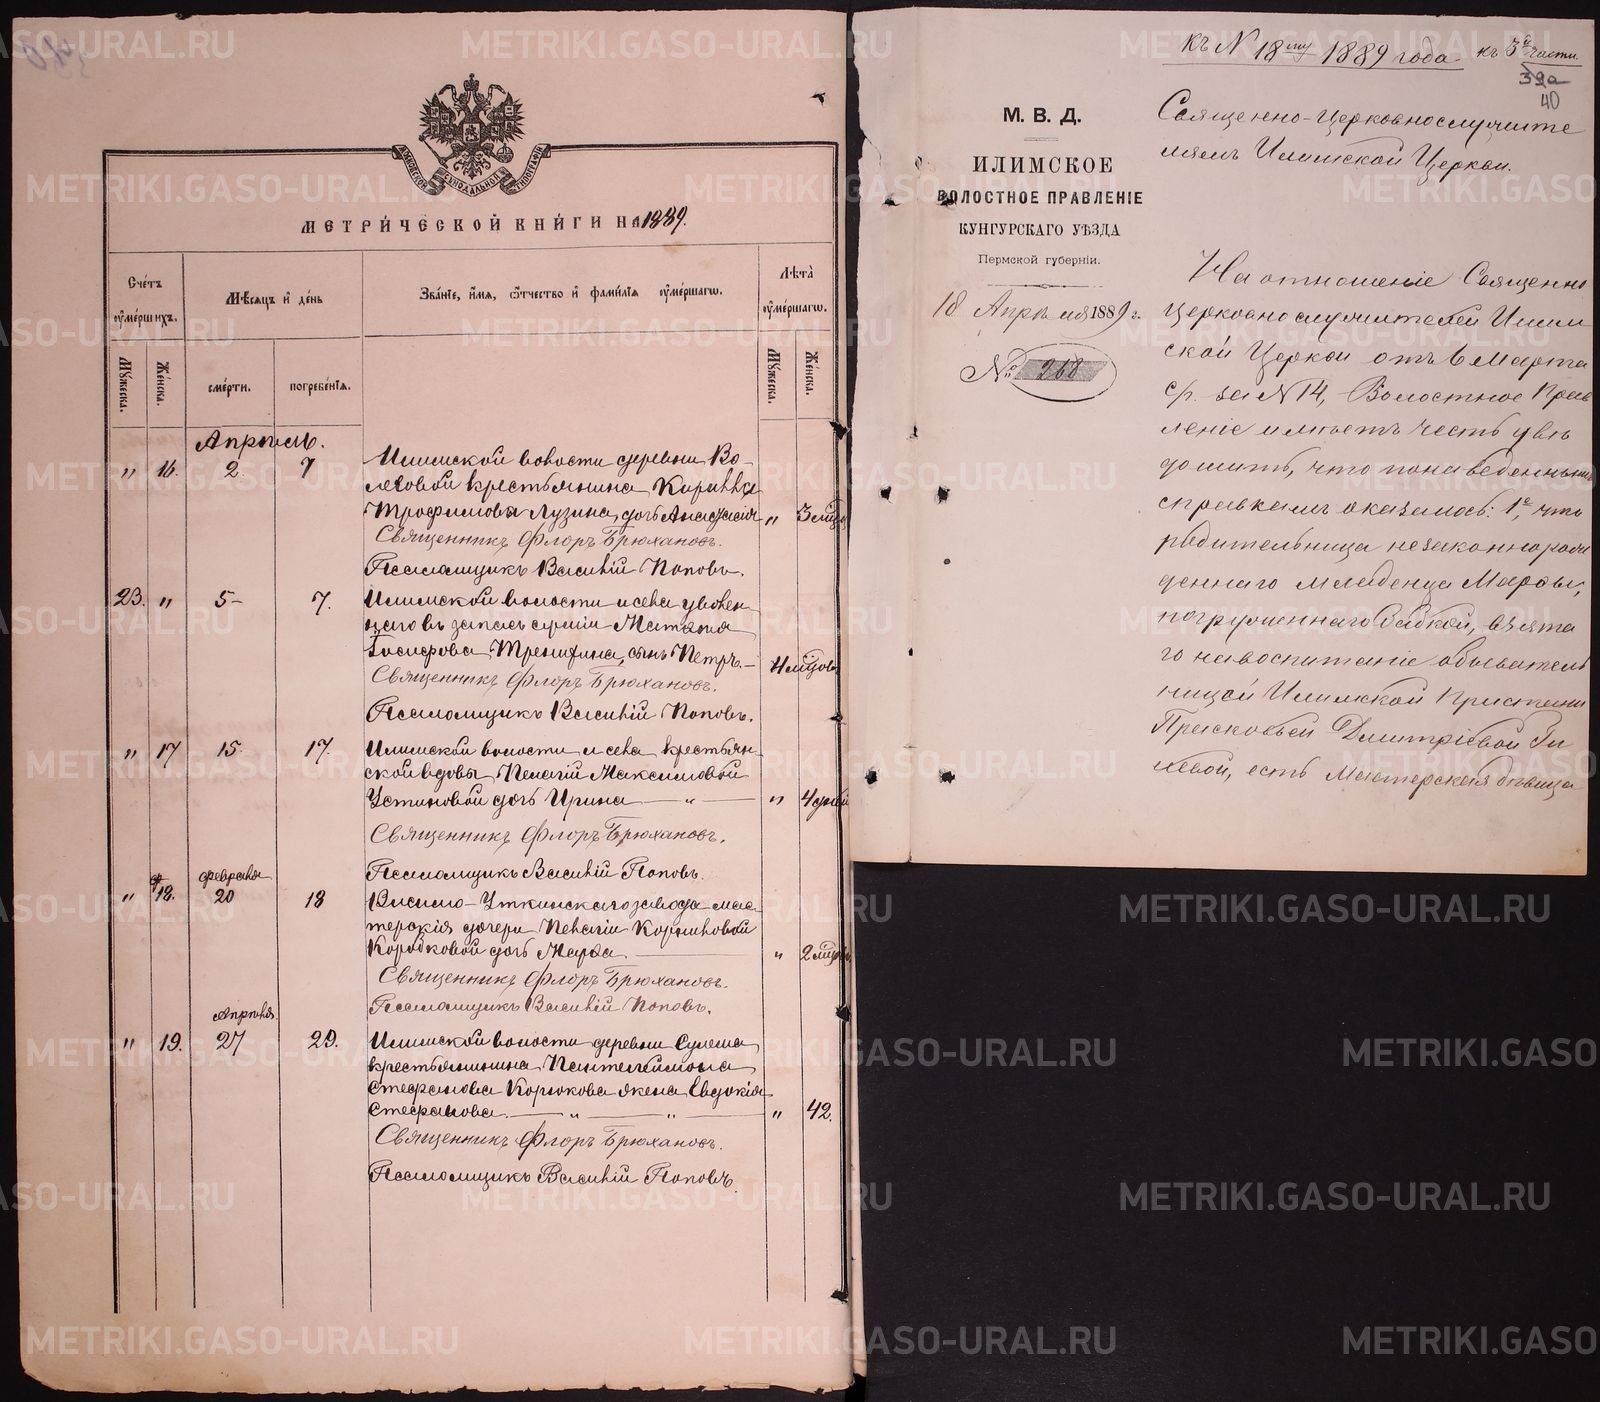 МЕТРИ́ЧЕСКОЙ КНИ́ГИ НА 1889.
Сче́тъ ᲂу҆ме́ршихъ.
Мѣ́сяцъ и҆ де́нь
Зва́нїе, и҆́мя, ѻ҆́тчество и҆ фами́лїя ᲂу҆ме́ршагѡ.
Лѣ́та ᲂу҆ме́ршагѡ.
Мꙋ́жеска.
Же́нска.
сме́рти.
погребе́нїѧ.
Мꙋ́жеска.
Же́нска.
Апрѣль.
" 16. 2. 7 Илимской волости деревни Во-
леговой крестьянина Кирилла
Трофимова Лузина, дочь Анастасія " 3 мѣс
Священникъ Флоръ Брюхановъ.
Псаломщикъ Василій Поповъ.
23. " 5- 7. Илимской волости и села уволен
наго въ запасъ арміи Матѳея
Іосифова Тренихина, сынъ Петръ.- 4 мѣсцовъ
Священникъ Флоръ Брюхановъ.
Псаломщикъ Василій Поповъ.
" 17 15. 17. Илимской волости и села крестьян-
ской вдовы Пелагіи Максимовой
Устиновой дочь Ирина — " — " 4 дней
Священникъ Флоръ Брюхановъ.
Псаломщикъ Василій Поповъ.
февраля
" 18. 20 18 Висимо-Уткинскаго завода мас
терскія дочери Пелагіи Корниловой
Коробковой дочь Марѳа. " 2 мѣс
Священникъ Флоръ Брюхановъ.
Псаломщикъ Василій Поповъ.
Апрѣля.
" 19. 27 29. Илимской волости деревни Сулема
крестьянина Пантелеймона
Стефанова Корюкова жена Евдокія
Стефанова. — " — " " 42.
Священникъ Флоръ Брюхановъ.
Псаломщикъ Василій Поповъ.
къ N 18му 1889 года. къ 3й части
39а
40
М. В. Д.
ИЛИМСКОЕ
ВОЛОСТНОЕ ПРАВЛЕНІЕ
КУНГУРСКАГО УѢЗДА
Пермской губерніи.
18 Апрѣля 1889 г.
№ 268
Священно-церковнослужите
лямъ Илимской Церкви.
На отношеніе Священно
церковнослужителей Илим
ской Церкви отъ 6 Марта
с/г. за N 14, Волостное Прав
леніе имѣетъ честь увѣ
домить, что по наведеннымъ
справкамъ оказалось: 1е, что
родительница незаконнорож
деннаго младенца Марѳы,
погруженнаго бабкой, взята
го на воспитаніе обыватель
ницей Илимской Пристани
Прасковьей Дмитріевой Ги
левой, есть Мастерская дѣвица
METRIKI.GASO-URAL.RU